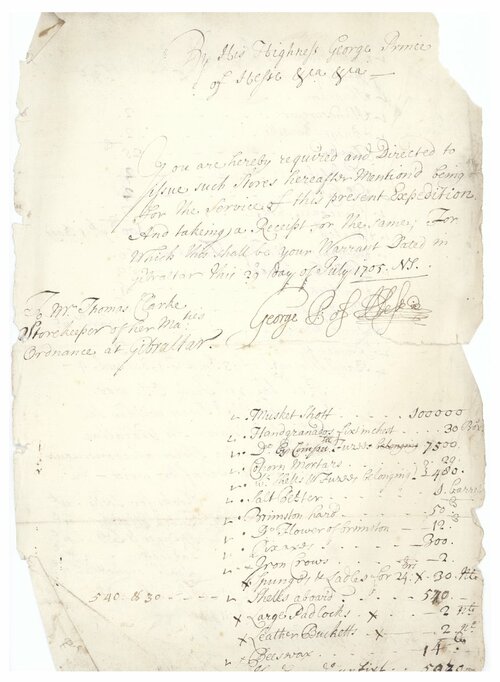 By His Highness George Prince
of Hesse &ca &ca
You are hereby required and Directed to
issue such Stores hereafter Mention'd being
for the Service of this present Expedition
And taking a Receipt for the same, For
Which this shall be your Warrant Dated in
Gibraltar this 23 day of July 1705. N.S.
George P of Hesse
To Mr. Thomas Clarke
Storekeeper of her Maties
Ordnance at Gibraltar.
Musket Shott 100000
Handgranados fix in chest 30
Do Fuzees 7500
Coehorn Mortars 20
Do Shells Fuzees belonging 3480
Salt Petter 1 barrel
Brimston hard 50
Do Flower of brimston 12
Pixaxes 300
Iron Crows 2
Spunges & Ladles for 24. 30
540 & 30 Shells aboard 570
Large Padlocks 2
Leather Bucketts 2
Beeswax 14